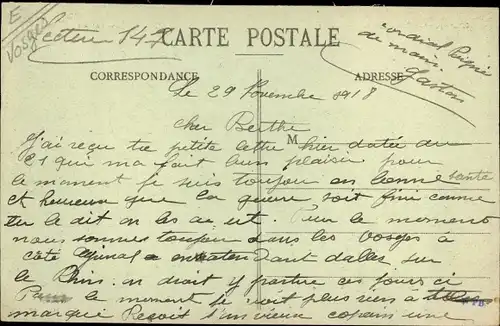 E
Vosges
Secteur 147
CARTE POSTALE
cordial Poignée
de main
Gaston
CORRESPONDANCE
ADRESSE
Le 29 Novembre 1918
cher Berthe
M
J'ai reçu ta petite lettre hier datée du
21 qui ma fait bien plaisir pour
le moment je suis toujou en bonne santé
et heureuse que la guerre soit fini comme
tu le dit on les a eut. Pour le moment
nous sommes toujou dans les Vosges à
côté Epinal en attendant daller sur
le Rhin. on droit y partire ces jours ci
Pour le moment je voit plus rien à
marqué Reçoit d'un vieux copain une